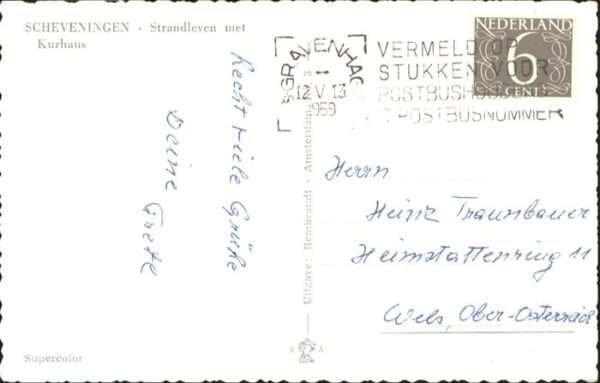 SCHEVENINGEN · Strandleven met
Kurhaus
Recht viele Grüße
Deine Grete
Uitgave: Rembrandt · Amsterdam
'S-GRAVENHAGE
12 V 13
1959
VERMELD OP
STUKKEN VOOR
POSTBUSHOUDERS
POSTBUSNUMMER
NEDERLAND
6
CENT
Herrn
Heinz Traunbauer
Heimstattenring 11
Wels, Ober-Österreich
Supercolor